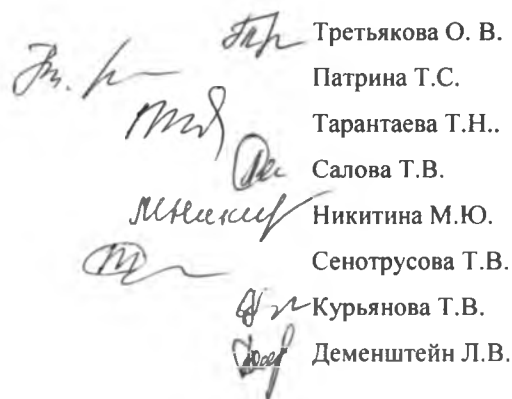 Третьякова О. В.
Патрина Т.С.
Тарантаева Т.Н..
Салова Т.В.
Никитина М.Ю.
Сенотрусова Т.В.
Курьянова Т.В.
Деменштейн Л.В.